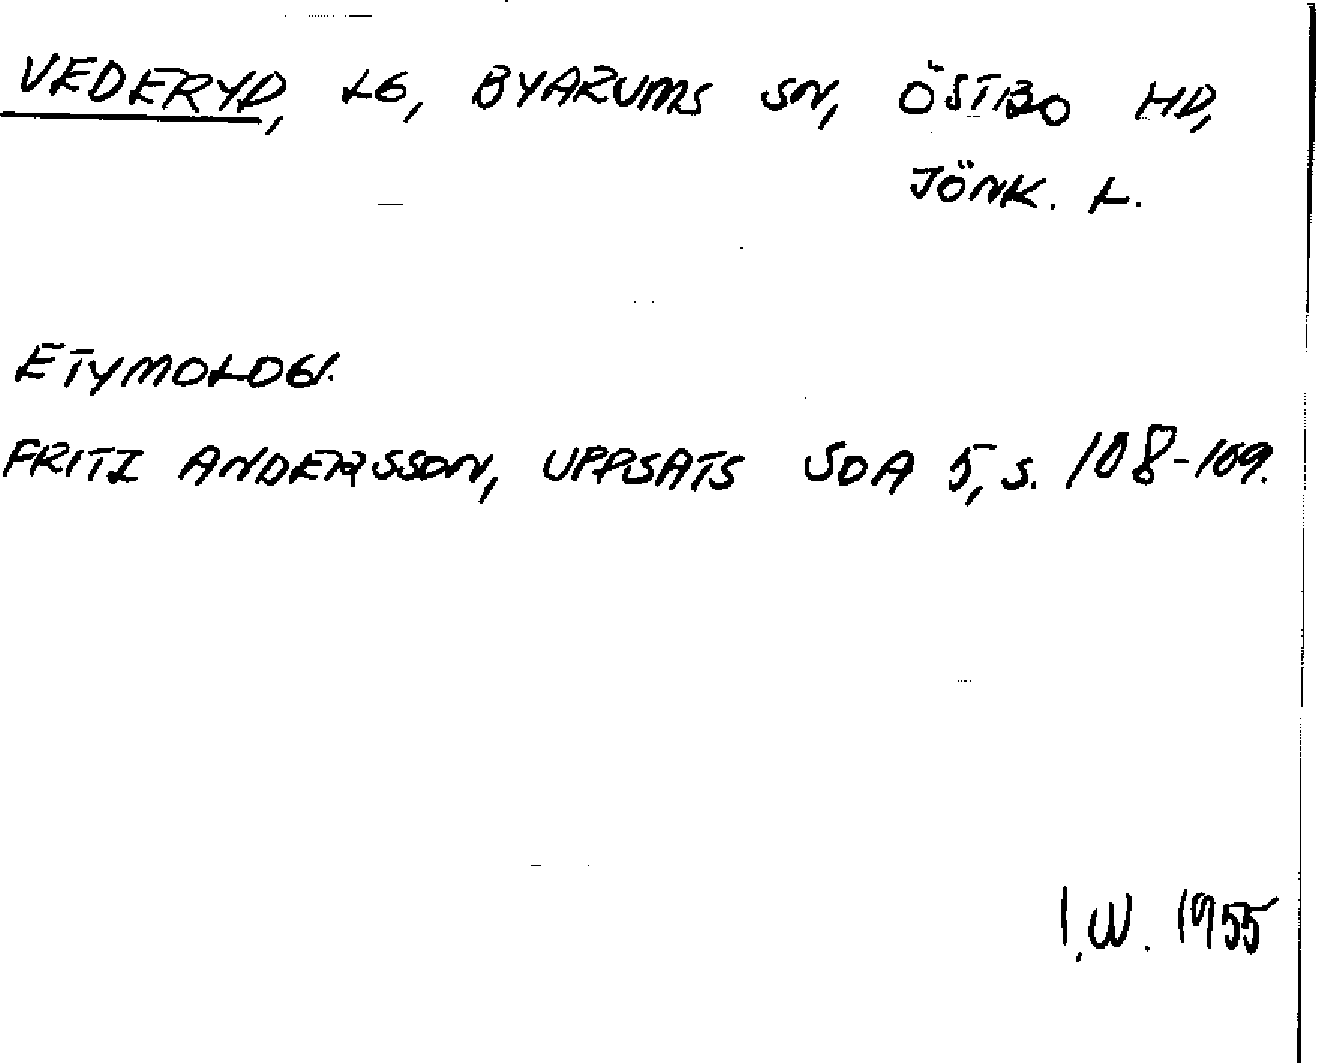 VEDERYD, LG, BYARUMS SN, ÖSTBO HD,
JÖNK. L.
ETYMOLOGI.
FRITZ ANDERSSON, UPPSATS SOA 5, S. 108-109.
I.W. 1955